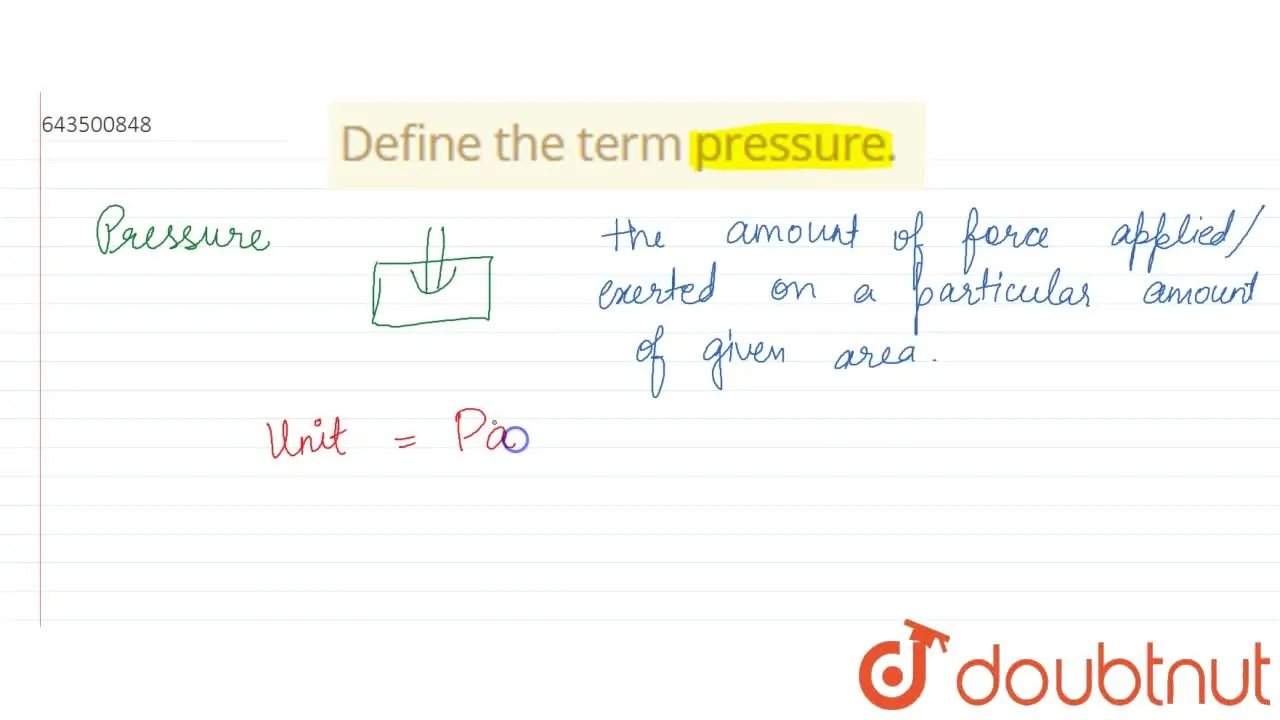 643500848
Define the term pressure.
Pressure
the amount of force applied/
exerted on a particular amount
of given area.
Unit = Pa
doubtnut